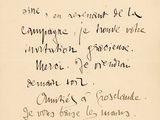 en revenant de la
campagne, je trouve votre
invitation gracieuse.
Merci. Je viendrai
demain soir.
Amitiés à Grosclaude.
Je vous baise les mains.